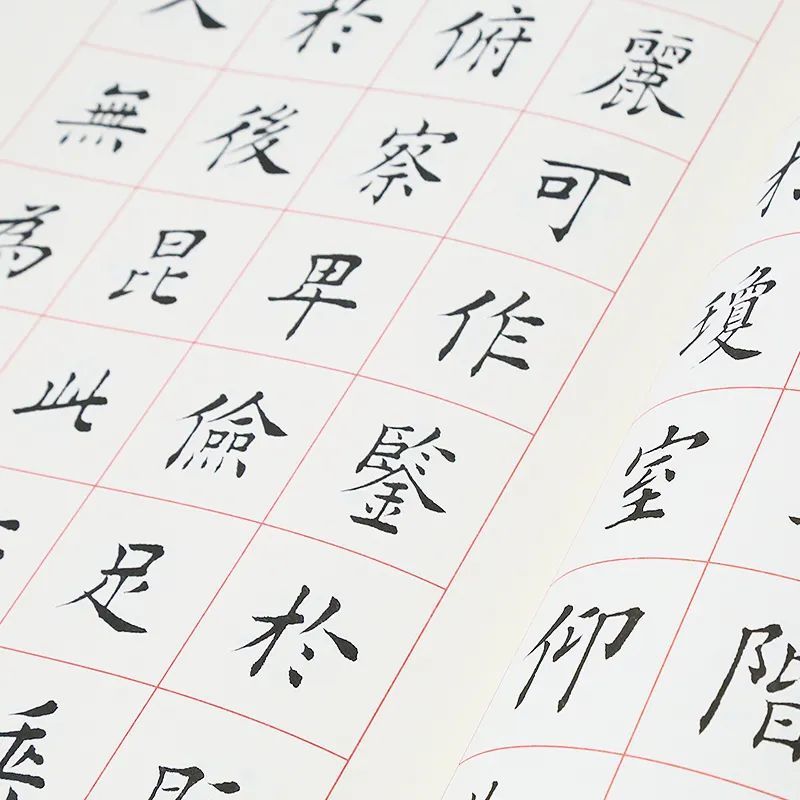 階
瓊室仰
麗可作鑒於
俯察卑儉足垂
於後昆此
人無為